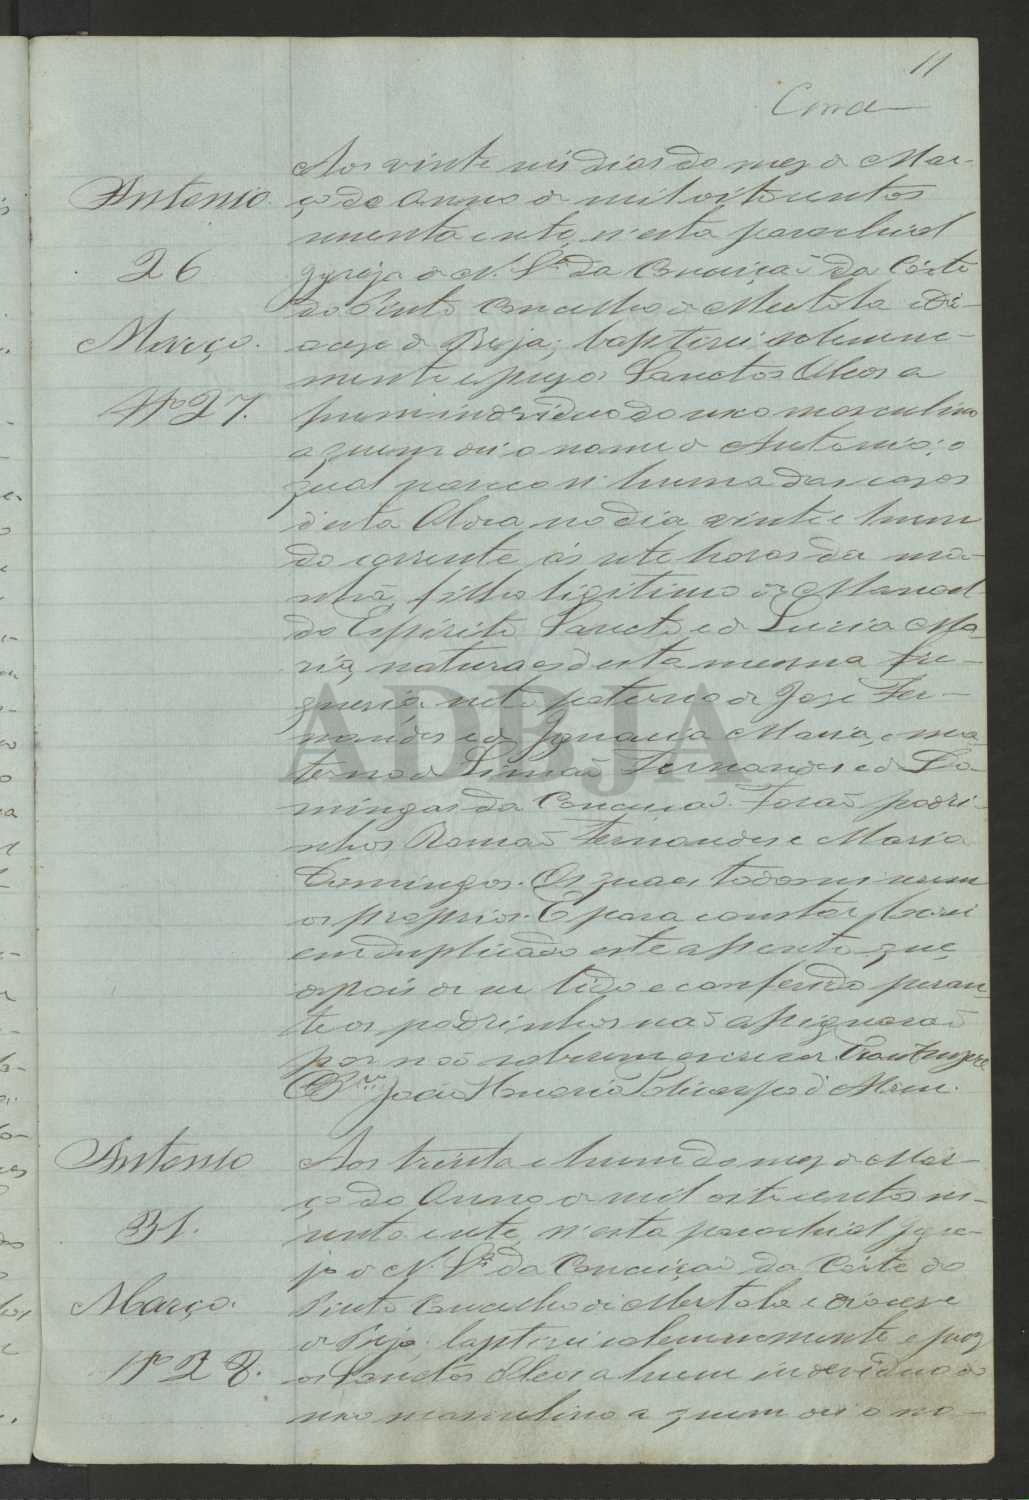 11
Antonio.
26
Março.
Nº 27.
Aos vinte seis dias do mez de Mar-
ço do Anno de mil oito centos
secenta e sete, n'esta parochial
Igreja de N. Sª da Conceição da Côrte
do Pinto Concelho de Mertola e Di-
ocese de Beja; baptizei solemne-
mente e puz os Sanctos Oleos a
hum individuo do sexo masculino
a quem dei o nome de Antonio; o
qual nasceo n'huma das casas
d'esta Aldea no dia vinte e hum
do corrente ás sete horas da ma-
nhã, filho ligitimo de Manoel
do Espirito Sancto e de Luzia Ma-
ria, naturaes desta mesma Fre-
guesia, neto paterno de José Fer-
nandes e de Ignacia Maria, e ma-
terno de Simão Fernandes e de Do-
mingas da Conceição. Forão padri-
nhos Romão Fernandes e Maria
Domingos. Os quaes todos sei serem
os proprios. E para constar lavrei
em duplicado este assento que,
depois de ser lido e conferido peran-
te os padrinhos não assignarão
por não saberem escrever. Era ut supra
João Policarpo d'
Antonio
31.
Março.
Nº 28.
Aos trinta e hum do mez de Mar-
ço do Anno de mil oito centos se-
centa e sete, n'esta parochial Igre-
ja de N. Sª da Conceição da Côrte do
Pinto Concelho de Mertola e Diocese
de Beja; baptizei solemnemente e puz
os Sanctos Oleos a hum individuo do
sexo masculino a quem dei o no-
ADBJA